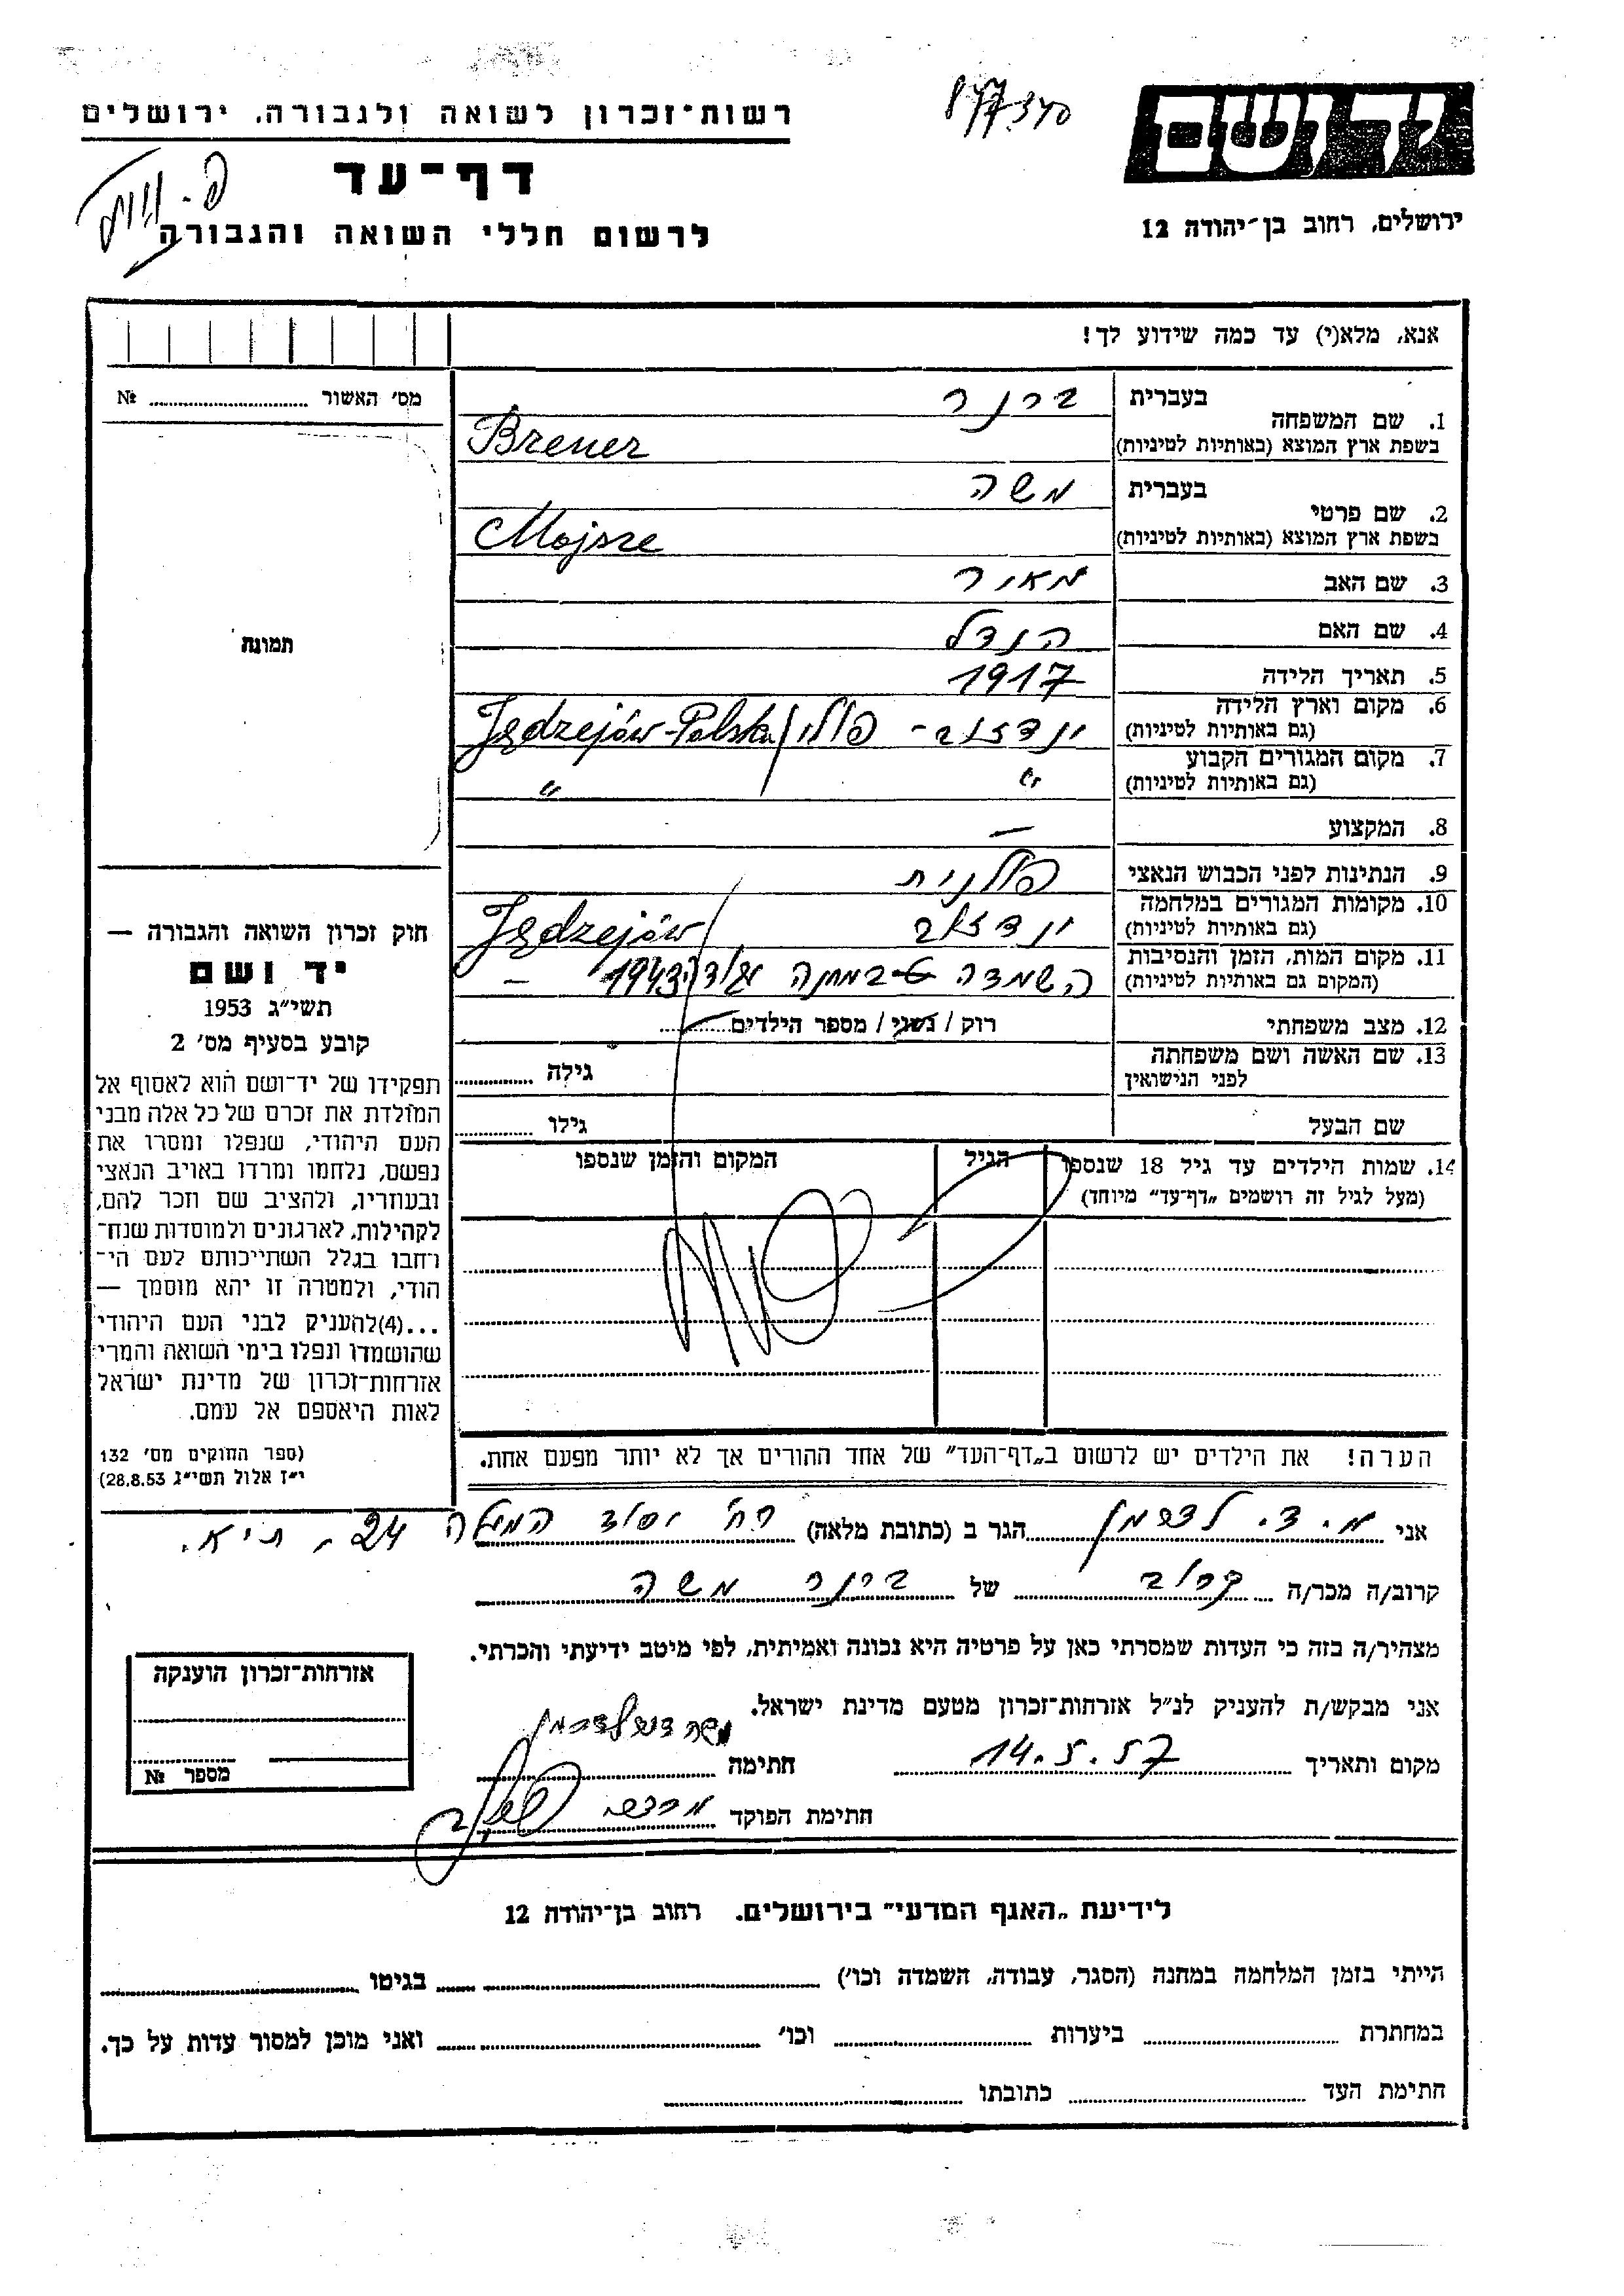 יד ושם
ירושלים, רחוב בן־יהודה 12
877340
רשות־זכרון לשואה ולגבורה, ירושלים
דף־עד
לרשום חללי השואה והגבורה
אנא, מלא(י) עד כמה שידוע לך!
1. שם המשפחה
בעברית ברנר
בשפת ארץ המוצא (באותיות לטיניות) Brener
2. שם פרטי
בעברית משה
בשפת ארץ המוצא (באותיות לטיניות) Mojsze
3. שם האב מאיר
4. שם האם הנדל
5. תאריך הלידה 1917
6. מקום וארץ הלידה
(גם באותיות לטיניות) ינדזוב - פולין / Jędzejów - Polska
7. מקום המגורים הקבוע
(גם באותיות לטיניות) " "
8. המקצוע —
9. הנתינות לפני הכבוש הנאצי פולנית
10. מקומות המגורים במלחמה
(גם באותיות לטיניות) ינדזוב / Jędzejów
11. מקום המות, הזמן והנסיבות
(המקום גם באותיות לטיניות) השמדה במחנה 1943 –
12. מצב משפחתי רוק / נשוי / מספר הילדים
13. שם האשה ושם משפחתה
לפני הנישואין גילה
שם הבעל גילו
14. שמות הילדים עד גיל 18 שנספו הגיל המקום והזמן שנספו
(מעל לגיל זה רושמים „דף־עד" מיוחד)
הערה! את הילדים יש לרשום ב„דף־העד" של אחד ההורים אך לא יותר מפעם אחת.
מס' האשור №
תמונה
חוק זכרון השואה והגבורה —
יד ושם
תשי״ג 1953
קובע בסעיף מס' 2
תפקידו של יד־ושם הוא לאסוף אל
המולדת את זכרם של כל אלה מבני
העם היהודי, שנפלו ומסרו את
נפשם, נלחמו ומרדו באויב הנאצי
ובעוזריו, ולהציב שם וזכר להם,
לקהילות, לארגונים ולמוסדות שנח־
רבו בגלל השתייכותם לעם הי־
הודי, ולמטרה זו יהא מוסמך —
...(4)להעניק לבני העם היהודי
שהושמדו ונפלו בימי השואה והמרי
אזרחות־זכרון של מדינת ישראל
לאות היאספם אל עמם.
(ספר החוקים מס' 132
י״ז אלול תשי״ג 28.8.53)
אני מ. ד. לדרמן הגר ב (כתובת מלאה) רח' יסוד המעלה 24, ת״א.
קרוב/ה מכר/ה קרוב של ברנר משה
מצהיר/ה בזה כי העדות שמסרתי כאן על פרטיה היא נכונה ואמיתית, לפי מיטב ידיעתי והכרתי.
אני מבקש/ת להעניק לנ״ל אזרחות־זכרון מטעם מדינת ישראל.
מקום ותאריך 14.5.57 חתימה
חתימת הפוקד
אזרחות־זכרון הוענקה
מספר №
לידיעת „האגף המדעי" בירושלים. רחוב בן־יהודה 12
הייתי בזמן המלחמה במחנה (הסגר, עבודה, השמדה וכו') בגיטו
במחתרת ביערות וכו' ואני מוכן למסור עדות על כך.
חתימת העד כתובתו